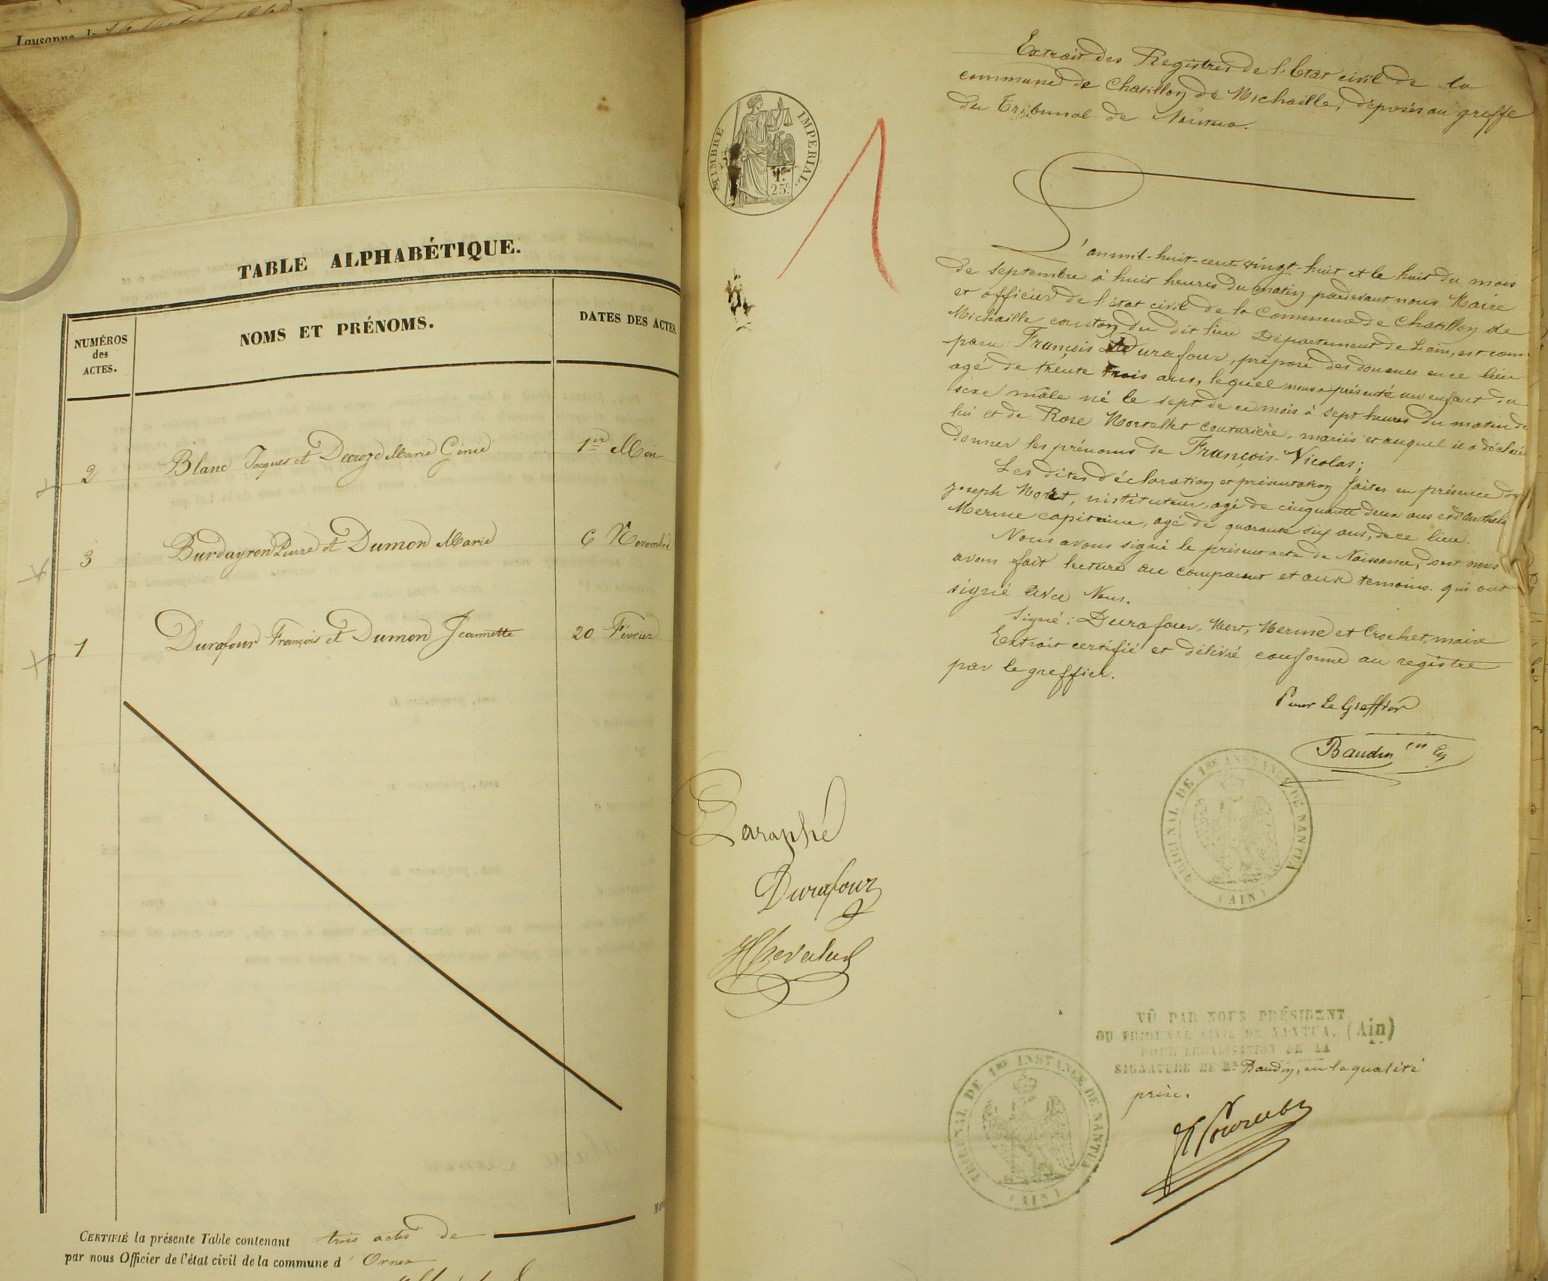 Lausanne le
TABLE ALPHABÉTIQUE.
NUMÉROS
des
ACTES.
NOMS ET PRÉNOMS.
DATES DES ACTES
2 Blanc Jacques et Marie Génie 1er Mai
3 Burdayron Pierre et Dumon Marie 6 Novembre
1 Durafour François et Dumon Jeannette 20 Février
CERTIFIÉ la présente Table contenant trois actes de
par nous Officier de l'état civil de la commune d' Ornex
TIMBRE IMPÉRIAL
1F
25C
Extrait des Registres de l'Etat civil de la
commune de Chatillon de Michaille, déposés au greffe
du Tribunal de Nantua.
L'an mil-huit-cent vingt-huit et le huit du mois
de septembre à huit heures du matin pardevant nous Maire
et officier de l'état civil de la Commune de Chatillon de
Michaille canton du dit lieu Département de l'ain, est com-
paru François Durafour, préposé des douanes en ce lieu
agé de trente trois ans, lequel nous a présenté un enfant du
sexe mâle né le sept de ce mois à sept heures du matin de
lui et de Rose couturière, mariés et auquel il a déclaré
donner les prénoms de François-Nicolas;
Les dites déclaration et présentation faites en présence de
Joseph instituteur, agé de cinquante deux ans et
Merme capitaine, agé de quarante six ans, de ce lieu.
Nous avons signé le présent acte de Naissance, dont nous
avons fait lecture au comparant et aux temoins qui ont
signé avec Nous.
Signé: Durafour, Merme et Crochet, maire
Extrait certifié et délivré conforme au registre
par le greffier.
Pour Le Greffier
Baudin
TRIBUNAL DE 1RE INSTANCE DE NANTUA
(AIN)
Paraphé
Durafour
VÛ PAR NOUS PRÉSIDENT
DU TRIBUNAL CIVIL DE NANTUA. (Ain)
POUR LEGALISATION DE LA
SIGNATURE DE Mr Baudin, en la qualité
prise.
TRIBUNAL DE 1RE INSTANCE DE NANTUA
(AIN)